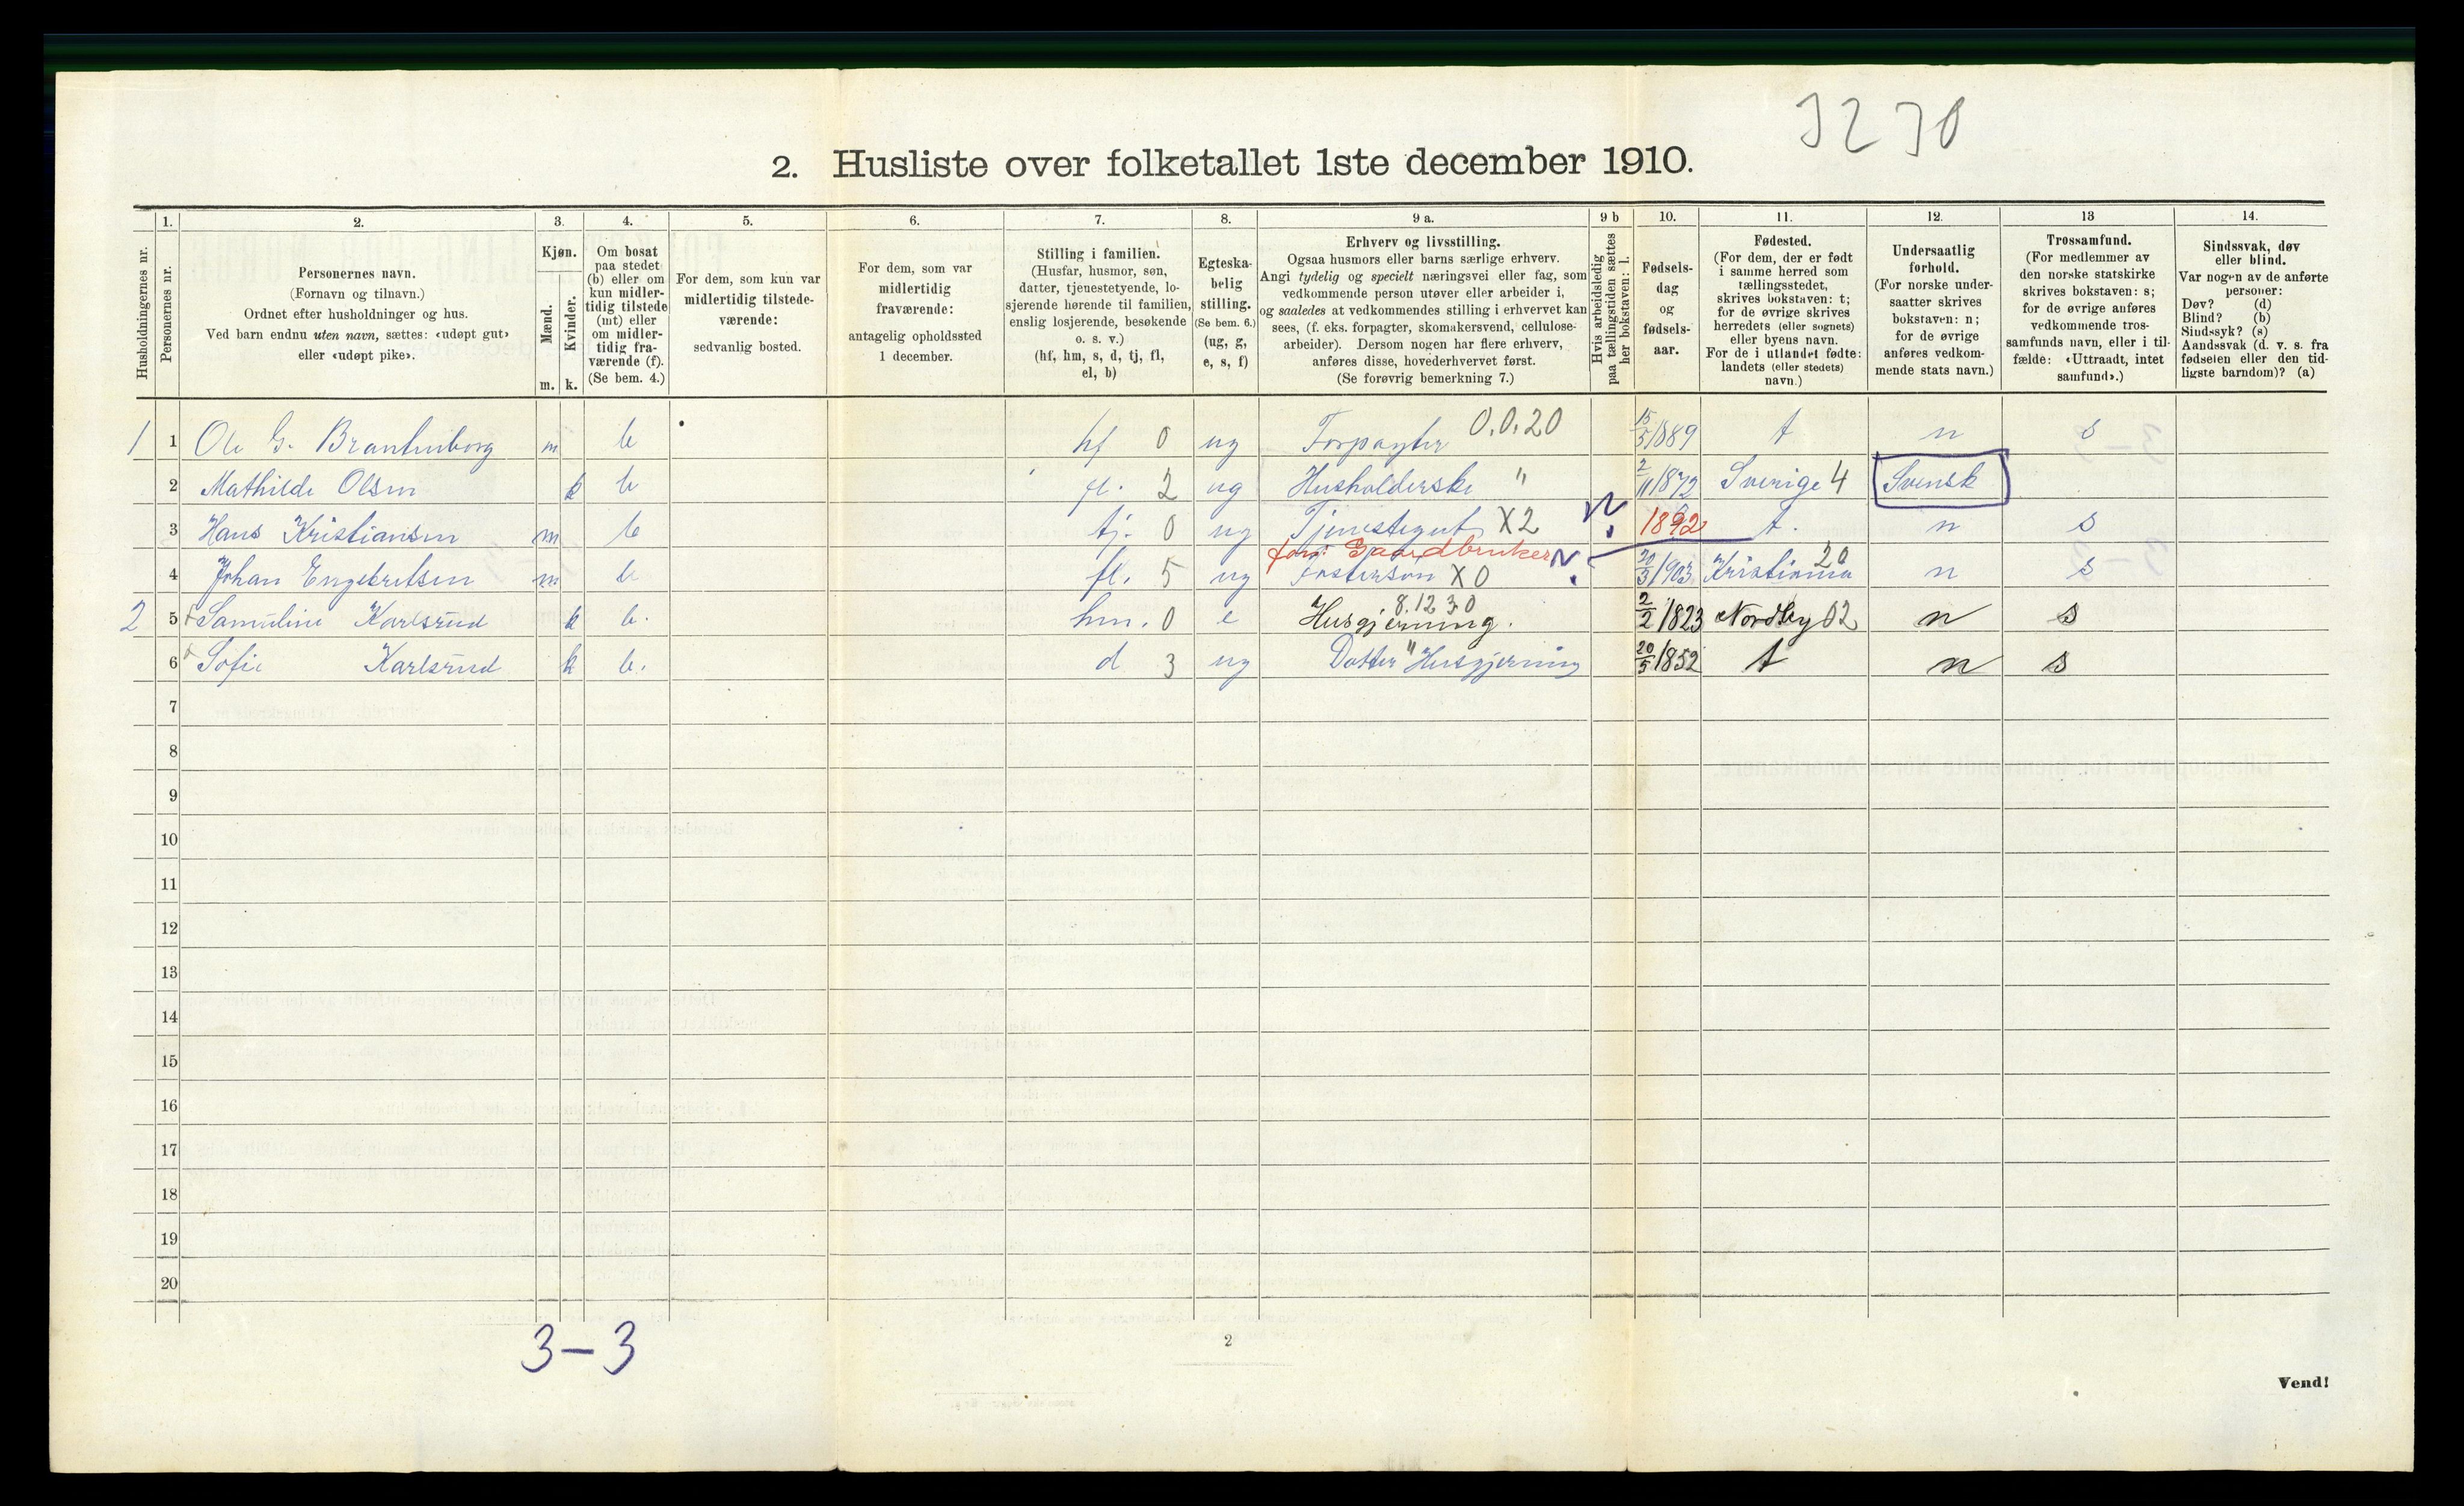 3230
2. Husliste over folketallet 1ste december 1910.
Husholdningernes nr.
1.
Personernes nr.
2.
Personernes navn.
(Fornavn og tilnavn.)
Ordnet efter husholdninger og hus.
Ved barn endnu uten navn, sættes: «udøpt gut»
eller «udøpt pike».
3.
Kjøn.
Mænd.
Kvinder.
m. k.
4.
Om bosat
paa stedet
(b) eller om
kun midler-
tidig tilstede
(mt) eller
om midler-
tidig fra-
værende (f).
(Se bem. 4.)
5.
For dem, som kun var
midlertidig tilstede-
værende:
sedvanlig bosted.
6.
For dem, som var
midlertidig
fraværende:
antagelig opholdssted
1 december.
7.
Stilling i familien.
(Husfar, husmor, søn,
datter, tjenestetyende, lo-
sjerende hørende til familien,
enslig losjerende, besøkende
o. s. v.)
(hf, hm, s, d, tj, fl,
el, b)
8.
Egteska-
belig
stilling.
(Se bem. 6.)
(ug, g,
e, s, f)
9 a.
Erhverv og livsstilling.
Ogsaa husmors eller barns særlige erhverv.
Angi tydelig og specielt næringsvei eller fag, som
vedkommende person utøver eller arbeider i,
og saaledes at vedkommendes stilling i erhvervet kan
sees, (f. eks. forpagter, skomakersvend, cellulose-
arbeider). Dersom nogen har flere erhverv,
anføres disse, hovederhvervet først.
(Se forøvrig bemerkning 7.)
9 b
Hvis arbeidsledig
paa tællingstiden sættes
her bokstaven: l.
10.
Fødsels-
dag
og
fødsels-
aar.
11.
Fødested.
(For dem, der er født
i samme herred som
tællingsstedet,
skrives bokstaven: t;
for de øvrige skrives
herredets (eller sognets)
eller byens navn.
For de i utlandet fødte:
landets (eller stedets)
navn.)
12.
Undersaatlig
forhold.
(For norske under-
saatter skrives
bokstaven: n;
for de øvrige
anføres vedkom-
mende stats navn.)
13
Trossamfund.
(For medlemmer av
den norske statskirke
skrives bokstaven: s;
for de øvrige anføres
vedkommende tros-
samfunds navn, eller i til-
fælde: «Uttraadt, intet
samfund».)
14.
Sindssvak, døv
eller blind.
Var nogen av de anførte
personer:
Døv? (d)
Blind? (b)
Sindssyk? (s)
Aandssvak (d. v. s. fra
fødselen eller den tid-
ligste barndom)? (a)
1 1 Ole G. Brantenborg m b hf 0 ug Forpagter 0.0.20 15/5 1889 t n s
2 Mathilde Olsen k b fl. 2 ug Husholderske " 2/11 1872 Sverige 4 Svensk
3 Hans Kristiansen m b tj. 0 ug Tjenestegut X2 1892 t. n s
for: Gaardbruker
4 Johan Engebretsen m b fl. 5 ug Fostersøn X0 20/3 1903 Kristiania 20 n s
2 5 Samuline Karlsrud k b. hm. 0 e Husgjerning. 8.12 30 2/2 1823 Nordby 02 n s
6 Sofie Karlsrud k b. d 3 ug Datter " Husgjerning 20/5 1852 t n s
7
8
9
10
11
12
13
14
15
16
17
18
19
20
3-3
2
Vend!